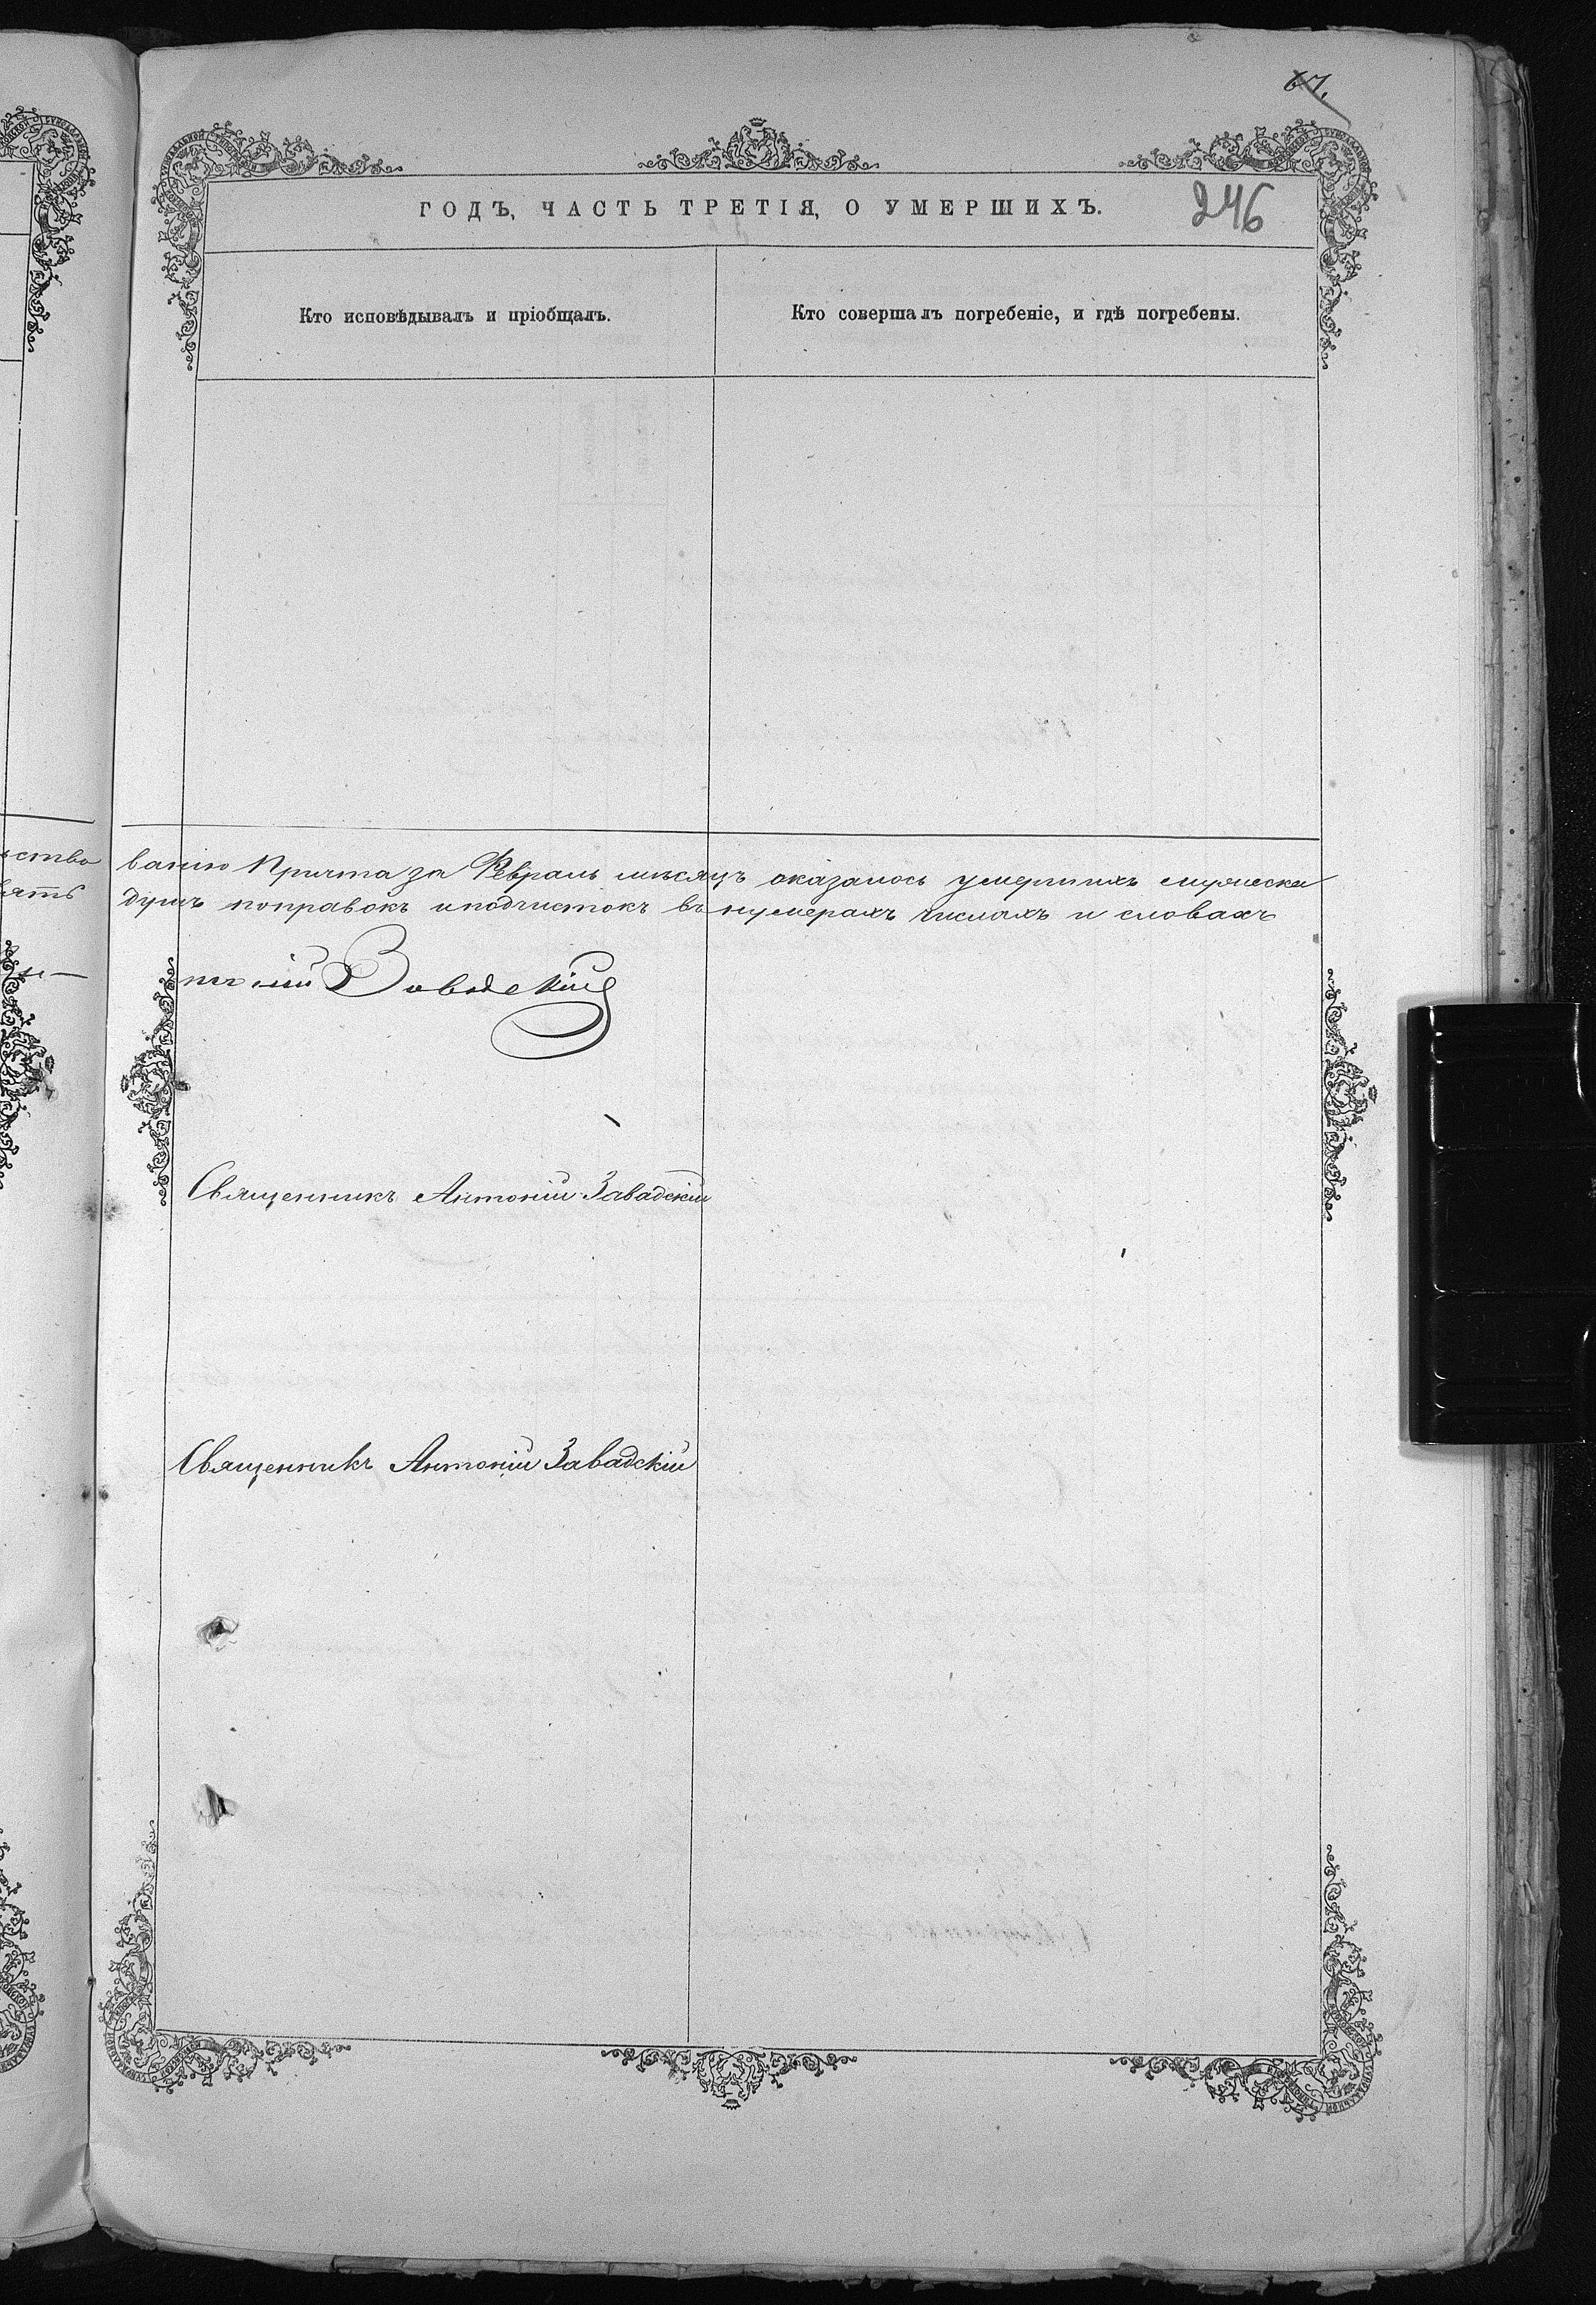 67.
246
ГОДЪ, ЧАСТЬ ТРЕТІЯ, О УМЕРШИХЪ.
Кто исповѣдывалъ и пріобщалъ.
Кто совершалъ погребеніе, и гдѣ погребены.
ванію Причта за Февраль мѣсяцъ оказалось умершихъ мужеска
душъ поправокъ и подчистокъ въ нумерахъ числахъ и словахъ
тоній Завадскій
Священникъ Антоній Завадскій
Священникъ Антоній Завадскій